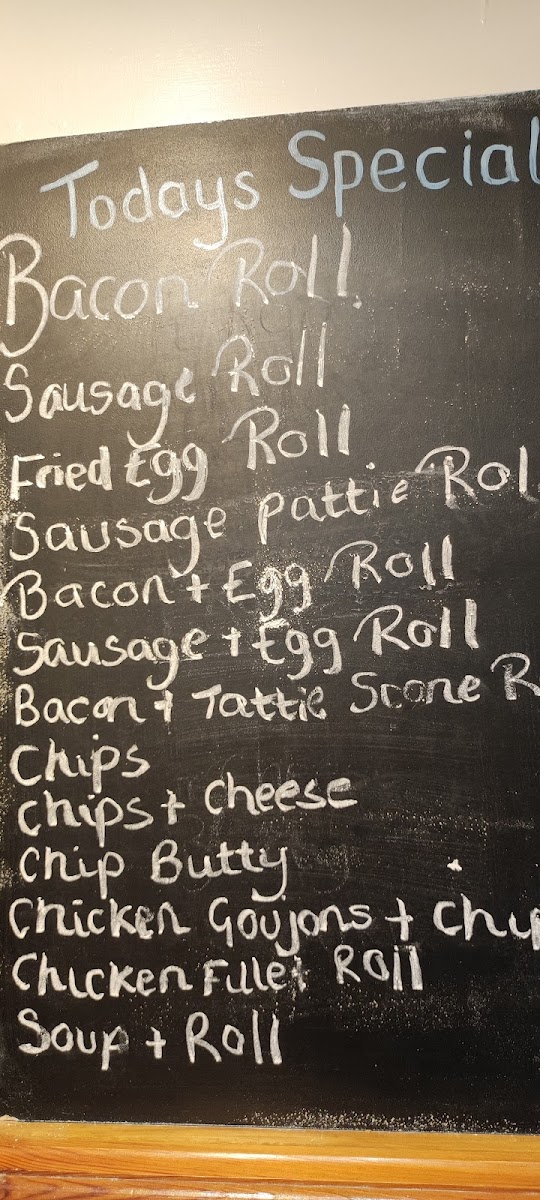 Todays Special
Bacon Roll.
Sausage Roll
Fried Egg Roll
Sausage Pattie Rol
Bacon + Egg Roll
Sausage + Egg Roll
Bacon + Tattie Scone R
Chips
Chips + Cheese
Chip Butty
Chicken Goujons + Chip
Chicken Fillet Roll
Soup + Roll